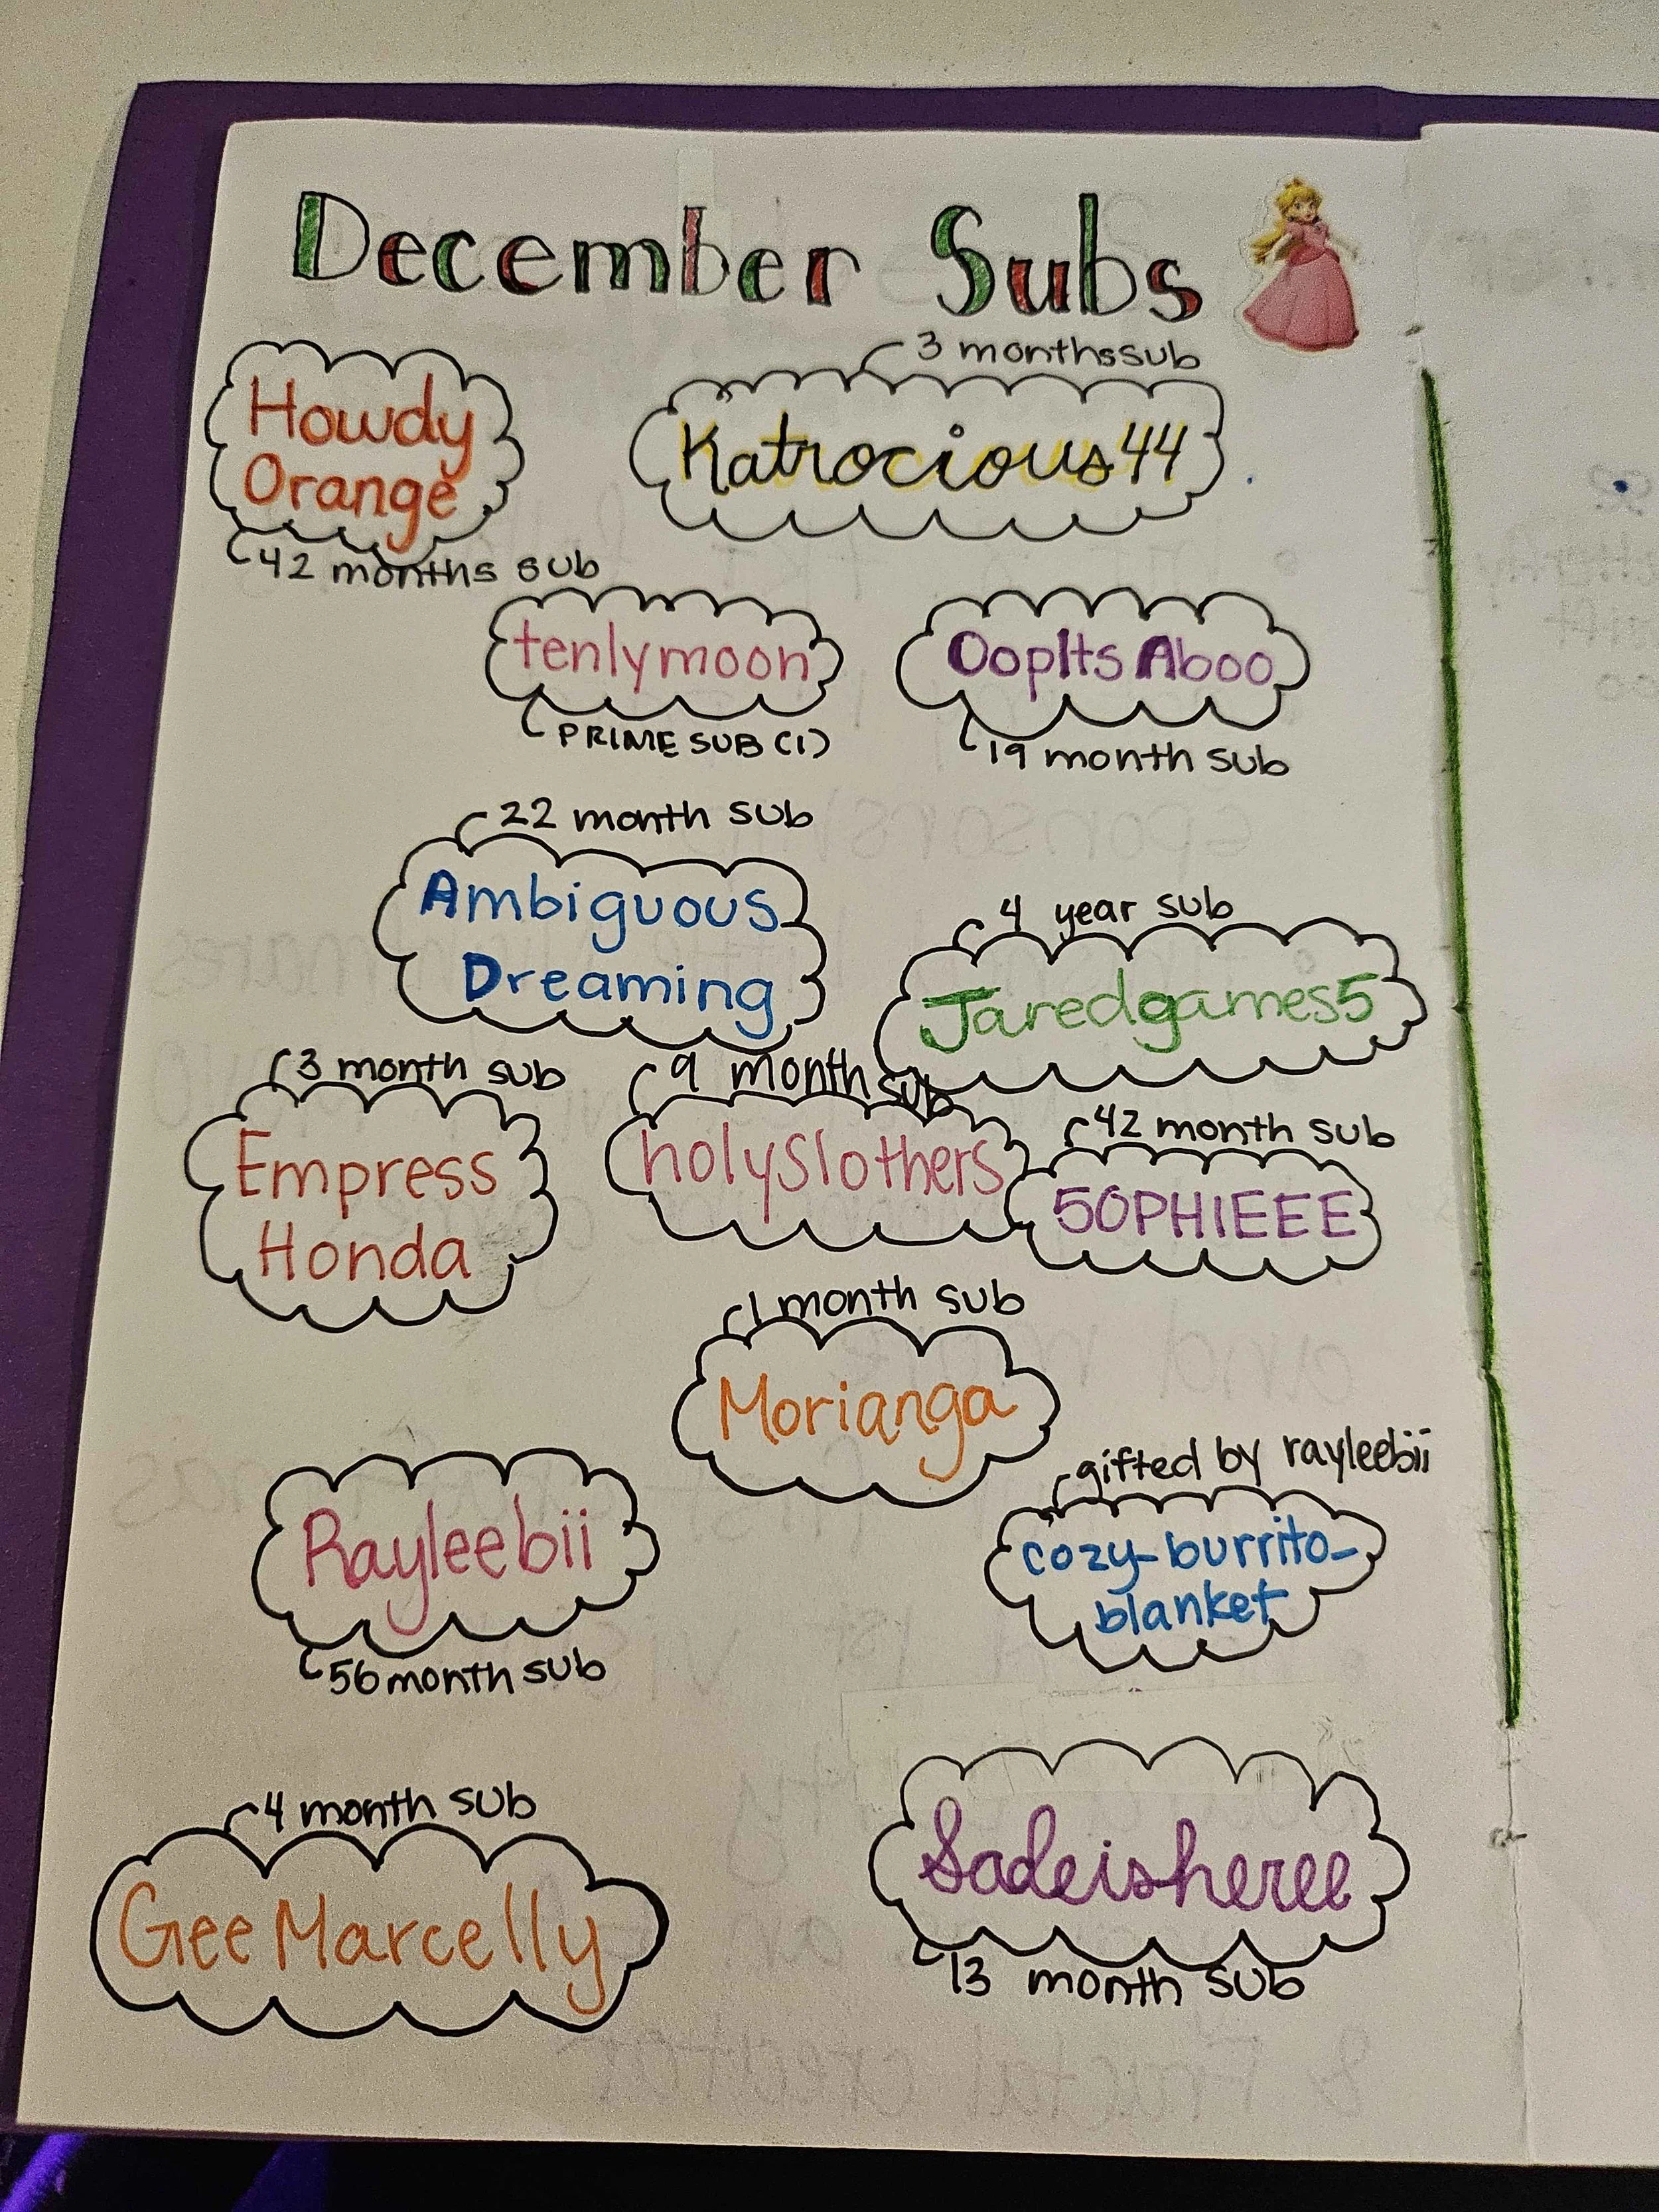 December Subs
3 monthssub
Howdy
Orange
42 months sub
Katrocious44
tenlymoon
PRIME SUB (1)
OopIts Aboo
19 month sub
22 month sub
Ambiguous
Dreaming
4 year sub
Jaredgames5
3 month sub
Empress
Honda
9 month sub
holyslothers
42 month sub
50PHIEEE
1 month sub
Morianga
Rayleebii
56 month sub
gifted by rayleebii
cozy_burrito_
blanket
4 month sub
Gee Marcelly
Sadeisheree
13 month sub